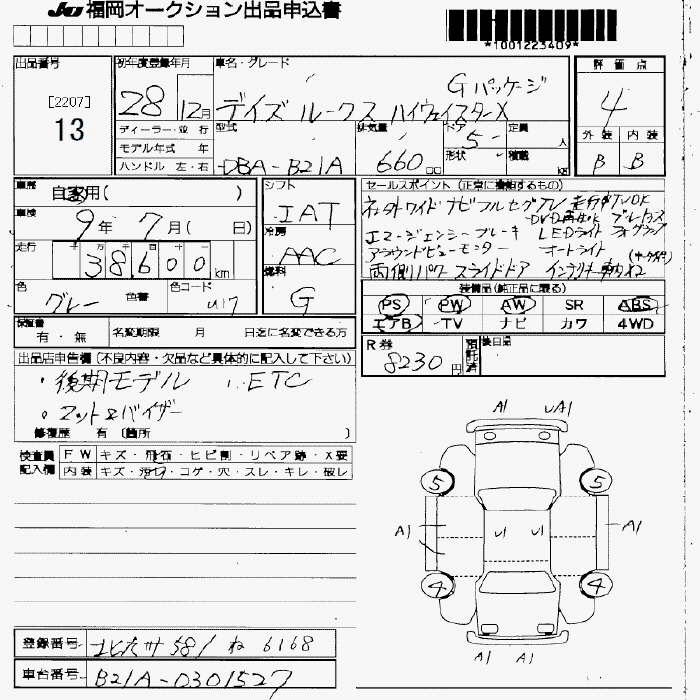 JU 福岡オークション出品申込書
*1001223409*
出品番号 [2207] 13
初年度登録年月 28 12月
車名・グレード Gパッケージ
デイズ ルークス ハイウェイスターX
評価点 4
外装 B 内装 B
ディーラー・並行
モデル年式 年
ハンドル 左・右
型式 DBA-B21A
排気量 660 cc
ドア 5
形状
定員 人
積載 kg
車歴 自家用( )
車検 9年 7月( 日)
走行 十 万 千 百 十 一
38,600 km
色 グレー 色替 色コード U17
シフト IAT
冷房 AAC
燃料 G
セールスポイント(正常に機能するもの)
LEDライト
エマージェンシーブレーキ
アラウンドビューモニター オートライト
両側パワースライドドア
装備品(純正品に限る)
PS PW AW SR ABS
エアB TV ナビ カワ 4WD
保証書 有・無
名変期限 月 日迄に名変できる方
R券 8230円
預託済
後日品
出品店申告欄(不良内容・欠品など具体的に記入して下さい)
・後期モデル ・ETC
・マット&バイザー
修復歴 有(箇所 )
検査員記入欄
FW キズ・飛石・ヒビ割・リペア跡・X要
内装 キズ・汚れ・コゲ・穴・スレ・キレ・破レ
A1 UA1
5 5
A1 U1 U1 A1
4 4
A1 A1
登録番号 北九州 581 ね 6168
車台番号 B21A-0301527